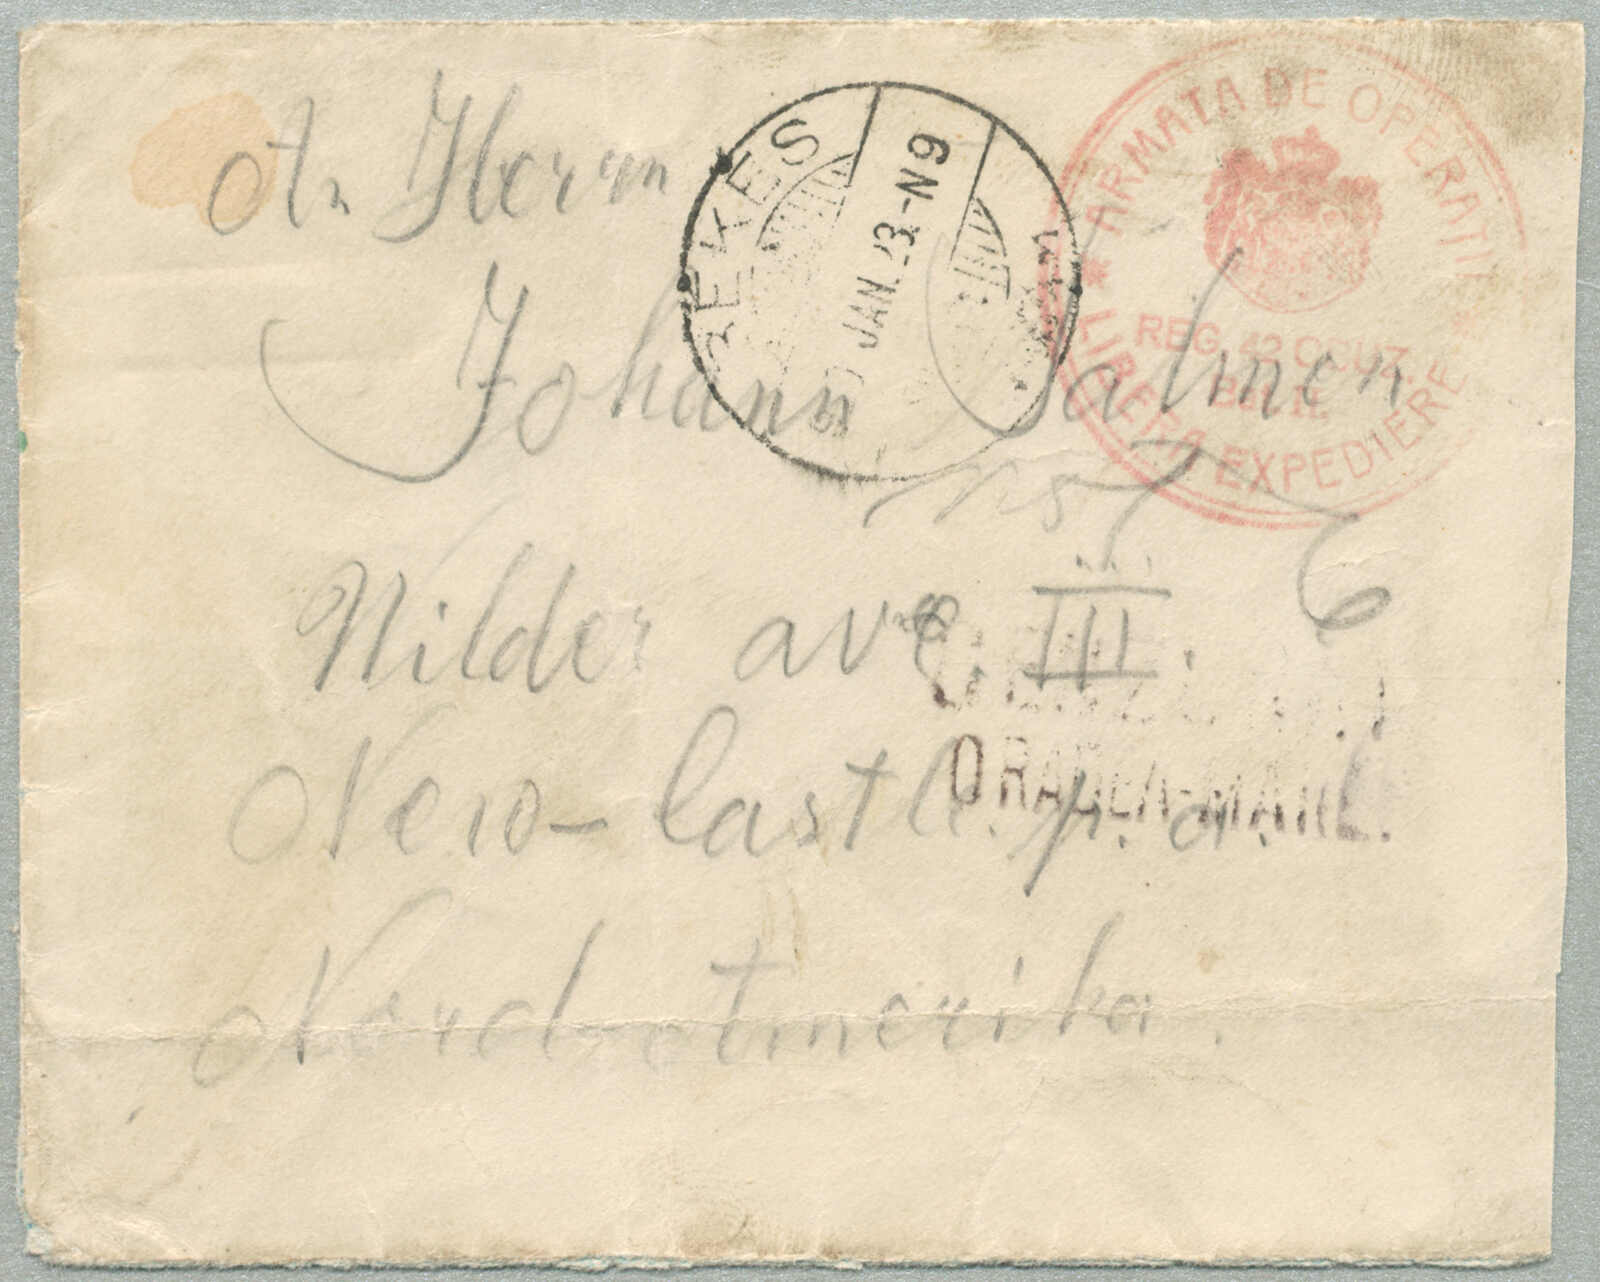 An Herrn
Johann Salmen
Wilder ave. III.
New-Castle. p. a.
Nord-Amerika.
BEKES
JAN. 23-N9
* ARMATA DE OPERATII *
REG. 42 OCUZ.
LIBERA EXPEDIERE
ORADEA-MARE.